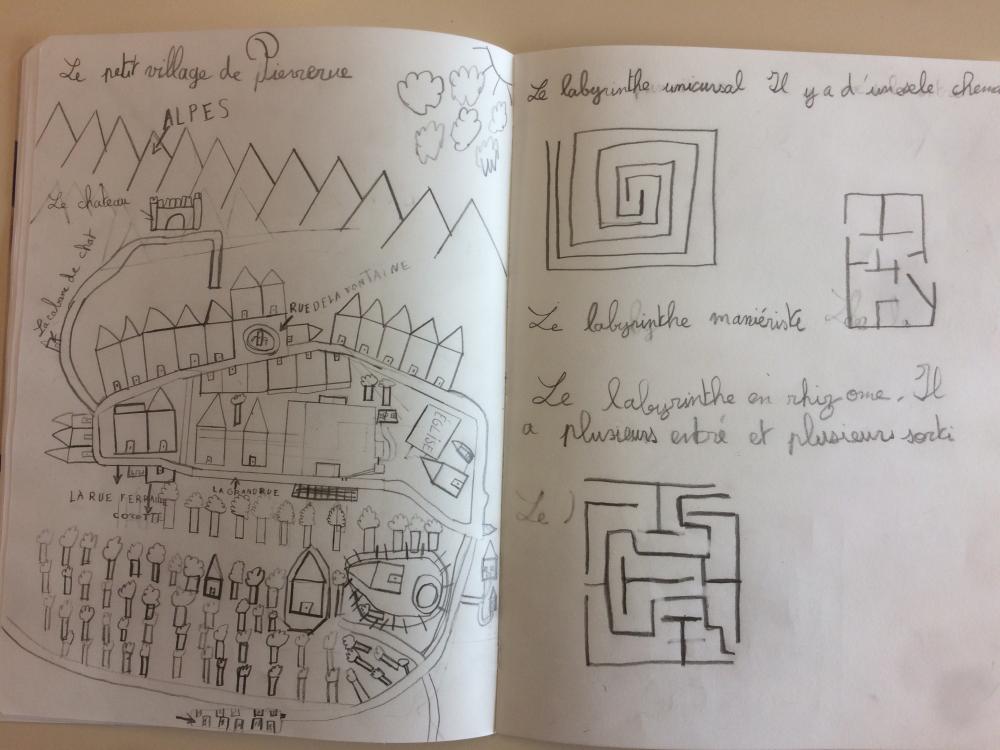 Le petit village de Pierrerue
ALPES
Le chateau
La cabane de chat
RUE DE LA FONTAINE
EGLISE
LA RUE FERRAILLE
LA GRAND RUE
COCOTTE
Le labyrinthe unicursal Il y a d'un sele chem
Le labyrinthe maniériste
Le labyrinthe en rhizome. Il
a plusieurs entré et plusieurs sorti
Le